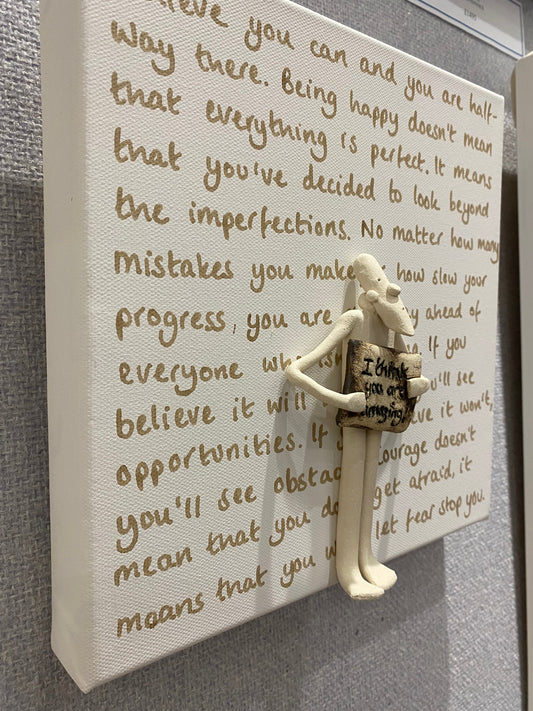 lieve you can and you are half-
way there. Being happy doesn't mean
that everything is perfect. It means
that you've decided to look beyond
the imperfections. No matter how many
mistakes you make how slow your
progress, you are ahead of
everyone who If you
believe it will see
opportunities. If it won't,
you'll see courage doesn't
mean that you get afraid, it
means that you let fear stop you.
I think
you are
amazing